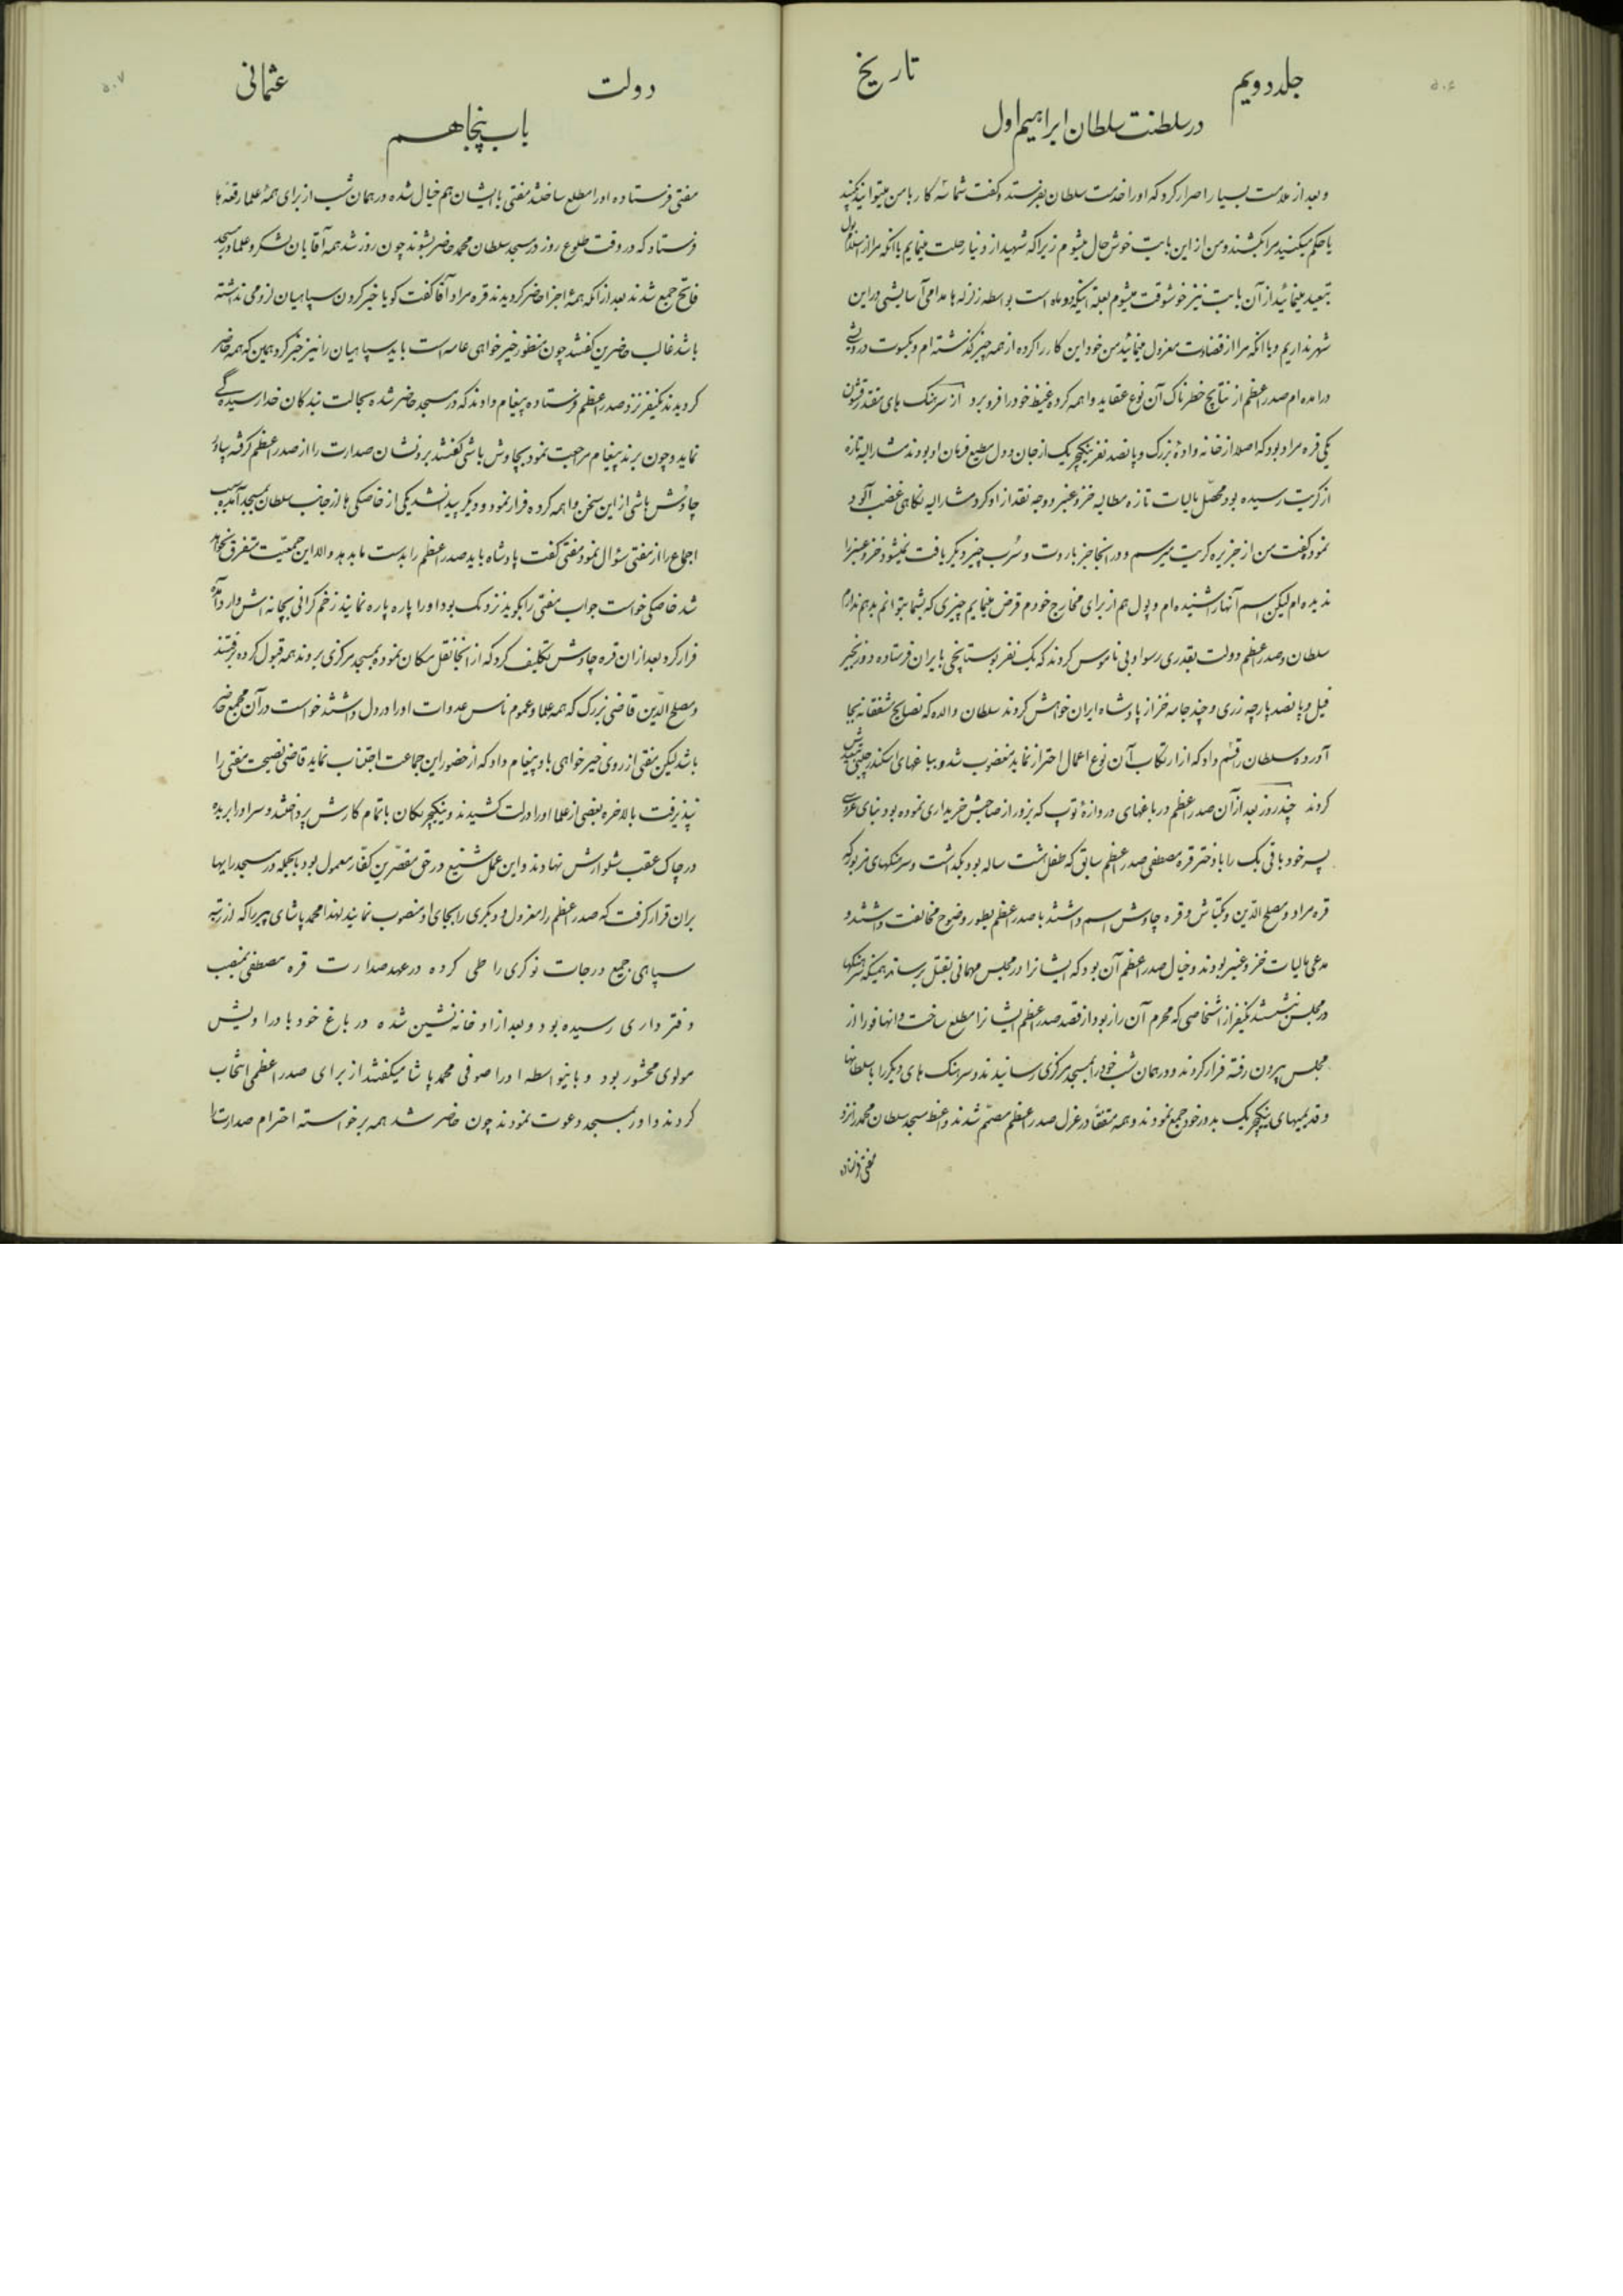 ۵۰۶
جلد دویم
تاریخ
در سلطنت سلطان ابراهیم اول
و بعد از ملامت بسیار اصرار کرد که او را خدمت سلطان بفرستد و گفت شما سه کار با من میتوانید بکنید
یا حکم میکنید مرا بکشند و من از این بابت خوش حال میشوم زیرا که شهید از دنیا رحلت مینمایم یا آنکه مرا از اسلامبول
تبعید مینمائید از آن بابت نیز خوشوقت میشوم بعلة اینکه دو ماه است بواسطه زلزله ها مدامی آسایشی در این
شهر نداریم و یا آنکه مرا از قضاوت معزول مینمائید من خود این کار را کرده از همه چیز گذشته ام و بکسوت درویشی
در آمده ام صدر اعظم از نتایج خطرناک آن نوع عقاید واهمه کرده غیظ خود را فرو برد از سرهنک های مقتدر قشون
یکی قره مراد بود که اصلا از خانه وادۀ بزرگ و پانصد نفر ینکیچریک از جان و دل مطیع فرمان او بودند مشار الیه تازه
از کریت رسیده بود محصّل مالیات تازه مطالبه خز و عنبر و وجه نقد از او کرد مشار الیه نگاهی غضب آلود
نمود گفت من از جزیره کریت میرسم و در انجا جز باروت و سُرب چیز دیگر یافت نمیشود خز و عنبر را
ندیده ام لیکن اسم آنها را شنیده ام و پول هم از برای مخارج خودم قرض مینمایم چیزی که بشما بتوانم بدهم ندارم
سلطان و صدر اعظم دولت بقدری رسوا و بی ناموس کردند که یک نفر بوستانچی بایران فرستاده دو زنجیر
فیل و پانصد پارچه زری و چند جامه خز از پادشاه ایران خواهش کردند سلطان والده که نصایح مشفقانه بجا
آورده سلطان را قسم داد که از ارتکاب آن نوع اعمال احتراز نماید مغضوب شد و بباغهای اسکندر چلبی تبعیدش
کردند چند روز بعد از آن صدر اعظم در باغهای دروازۀ توپ که بزور از صاحبش خریداری نموده بود بنای عروسی
پسر خود باقی بک را با دختر قره مصطفی صدر اعظم سابق که طفل هشت ساله بود بگذاشت و سرهنکهای مزبور که
قره مراد و مصلح الدّین و بکتاش و قره چاوش اسم داشتند با صدر اعظم بطور وضوح مخالفت داشتند و
مدعی مالیات خز و عنبر بودند و خیال صدر اعظم آن بود که ایشانرا در مجلس مهمانی بقتل برساند همینکه سرهنکها
در مجلس نشستند یکنفر از اشخاصی که محرم آن راز بود از قصد صدر اعظم ایشانرا مطلع ساخت و انها فورا از
مجلس بیرون رفته فرار کردند و در همان شب خود را بمسجد مرکزی رسانیدند و سرهنک های دیگر را با سلطانها
و قدیمیهای ینکیچریک بدور خود جمع نمودند و همه متفقاً در عزل صدر اعظم مصمّم شدند واعظ مسجد سلطان محمد را نزد
مفتی فرستاده
۵۰۷
دولت
عثمانی
باب پنجاهم
مفتی فرستاده او را مطلع ساختند مفتی با ایشان هم خیال شده در همان شب از برای همۀ علما رقعه ها
فرستاد که در وقت طلوع روز در مسجد سلطان محمد حاضر بشوند چون روز شد همه آقایان لشکر و علما در مسجد
فاتح جمع شدند بعد از آنکه همۀ اجزا حاضر کردیدند قره مراد آقا گفت گویا خبر کردن سپاهیان لزومی نداشته
باشد غالب حاضرین گفتند چون منظور خیر خواهی عامه است باید سپاهیان را نیز خبر کرد همین که همه حاضر
کردیدند یکنفر نزد صدر اعظم فرستاده پیغام دادند که در مسجد حاضر شده بحالت بندکان خدا رسیده گی
نماید و چون برنده پیغام مراجعت نمود بچاوش باشی گفتند برو نشان صدارت را از صدر اعظم گرفته بیاور
چاوش باشی از این سخن واهمه کرده فرار نمود و دیگر پیدا نشد یکی از خاصکی ها از جانب سلطان بمسجد آمده سبب
اجماع را از مفتی سؤال نمود مفتی گفت پادشاه باید صدر اعظم را بدست ما بدهد والا این جمعیّت متفرق نخواهد
شد خاصکی خواست جواب مفتی را بگوید نزدیک بود او را پاره پاره نمایند زخم گرانی بچانه اش وارد آمده
فرار کرد بعد از ان قره چاوش تکلیف کرد که از انجا نقل مکان نموده بمسجد مرکزی بروند همه قبول کرده برفتند
و مصلح الدّین قاضی بزرک که همه علما و عموم ناس عداوت او را در دل داشتند خواست در آن مجمع حاضر
باشد لیکن مفتی از روی خیر خواهی باو پیغام داد که از حضور این جماعت اجتناب نماید قاضی نصیحت مفتی را
نپذیرفت بالاخره بعضی از علما او را ذلت کشیدند و ینکیچریکان باتمام کارش پرداختند و سر او را بریده
در چاک عقب شلوارش نهادند و این عمل شنیع در حق مقصّرین کفّار معمول بود بالجمله در مسجد رایها
بران قرار گرفت که صدر اعظم را معزول و دیگری را بجای او منصوب نمایند لهذا محمد پاشای پیر را که از رتبه
سپاهی جمیع درجات نوکری را طی کرده در عهد صدارت قره مصطفی بمنصب
دفتر داری رسیده بود و بعد از او خانه نشین شده در باغ خود با دراویش
مولوی محشور بود و باینواسطه او را صوفی محمد پاشا میگفتند از برای صدر اعظمی انتخاب
کردند و او را بمسجد دعوت نمودند چون حاضر شد همه برخواسته احترام صدارت را